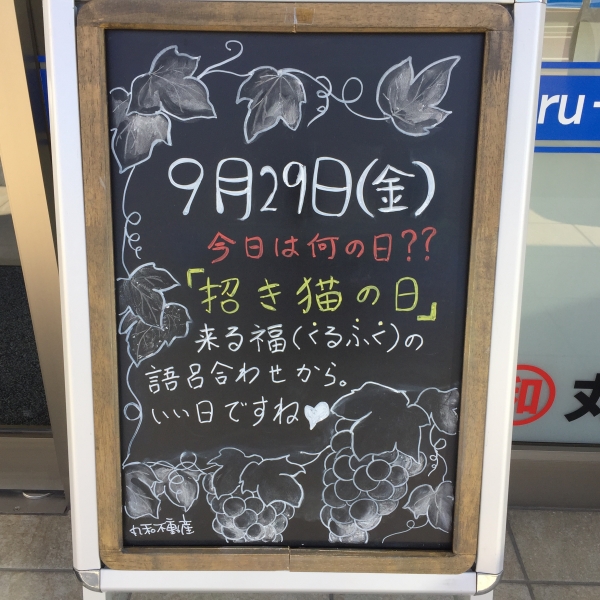 9月29日(金)
今日は何の日??
「招き猫の日」
来る福(くるふく)の
語呂合わせから。
いい日ですね♥
丸和不動産
ru-
和
丸